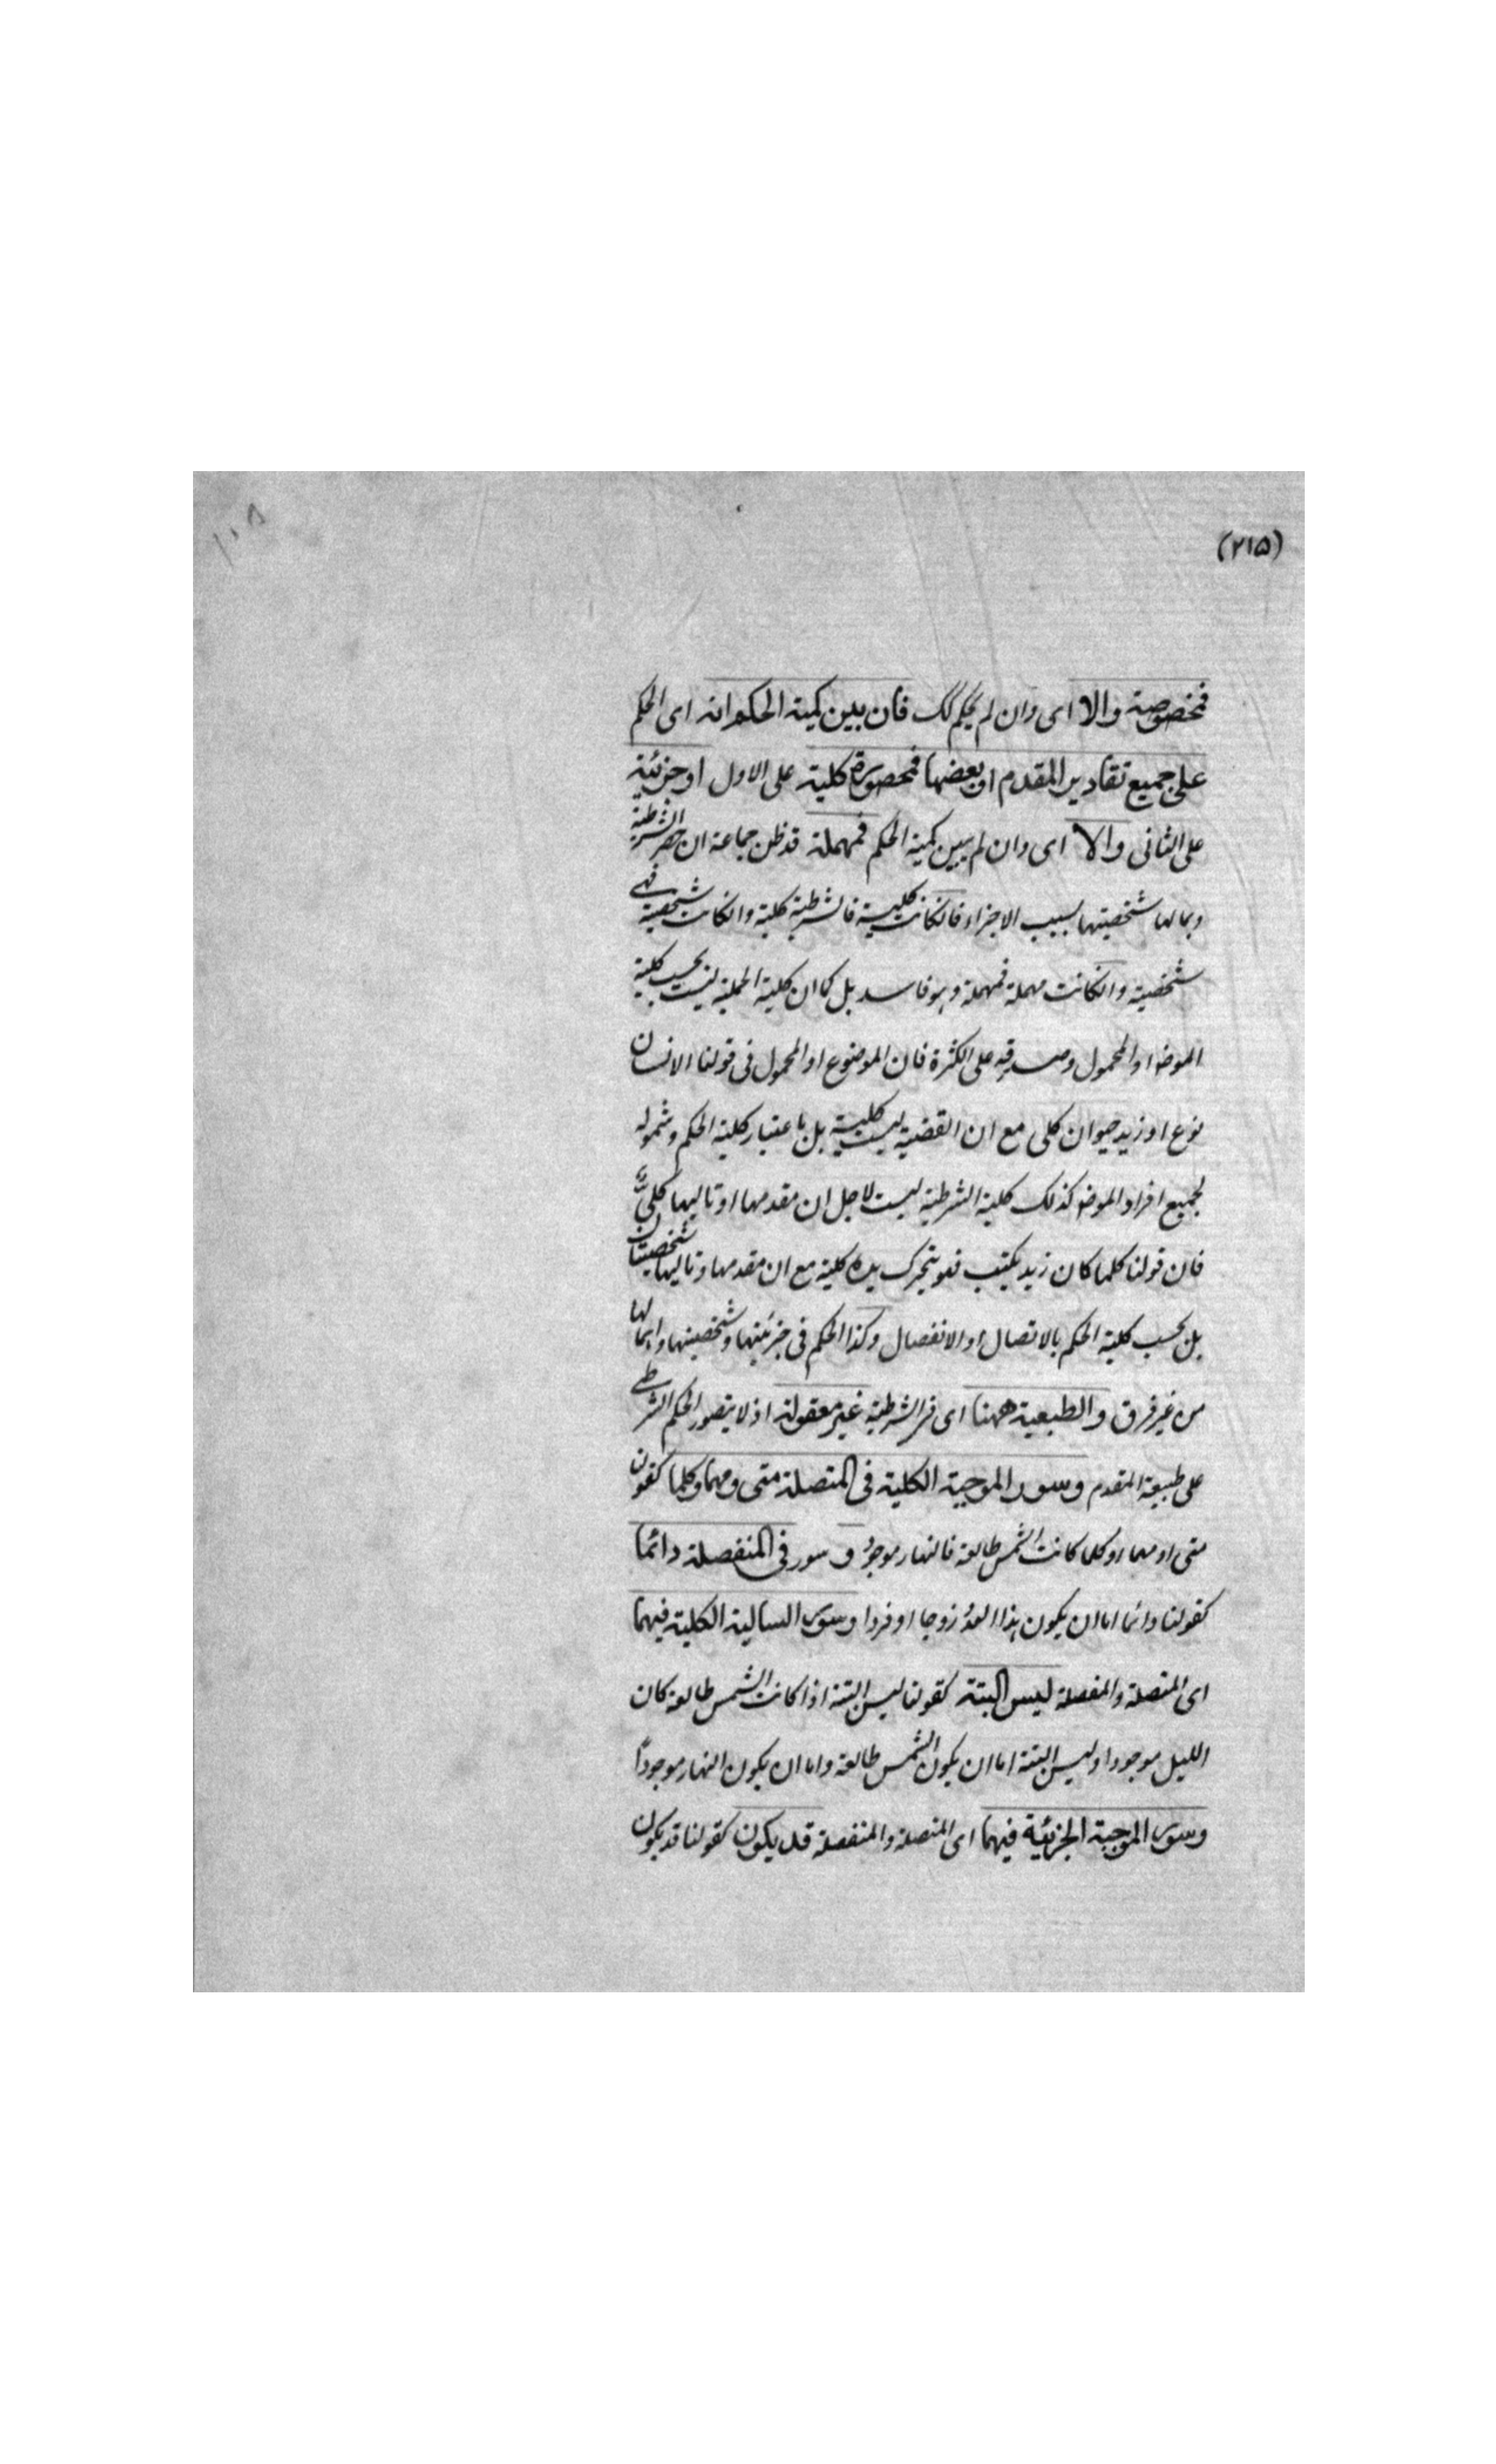 ١٠٨
(٢١٥)
فمخصوصة والا اى وان لم يكن كذلك فان بين كمية الحكم انه اى الحكم
على جميع تقادير المقدم او بعضها فمحصورة كلية على الاول او جزئية
على الثانى والا اى وان لم يبين كمية الحكم فمهملة قد ظن جماعة ان حصر الشرطية
واهمالها وشخصيتها بسبب الاجزاء فانكانت كلية فالشرطية كلية وانكانت شخصية فهى
شخصية وانكانت مهملة فمهملة وهو فاسد بل كما ان كلية الحملية ليست بحسب كلية
الموضو او المحمول وصدقه على الكثرة فان الموضوع او المحمول فى قولنا الانسان
نوع او زيد حيوان كلى مع ان القضية ليست كلية بل باعتبار كلية الحكم وشموله
لجميع افراد الموضو كذلك كلية الشرطية ليست لاجل ان مقدمها او تاليها كلى
فان قولنا كلما كان زيد يكتب فهو يتحرك يده كلية مع ان مقدمها وتاليها شخصيتان
بل بحسب كلية الحكم بالاتصال او الانفصال وكذا الحكم فى جزئيتها وشخصيتها واهمالها
من غير فرق والطبعية ههنا اى فى الشرطية غير معقولة اذ لا يتصور الحكم الشرطى
على طبيعة المقدم وسور الموجبة الكلية فى المتصلة متى ومهما وكلما كقولن
متى او مهما او كلما كانت الشمس طالعة فالنهار موجود و سور فى المنفصلة دائما
كقولنا دائما اما ان يكون هذا العدد زوجا او فردا وسور السالبة الكلية فيهما
اى المتصلة والمنفصلة ليس البتة كقولنا ليس البتة اذا كانت الشمس طالعة كان
الليل موجودا وليس البتة اما ان يكون الشمس طالعة واما ان يكون النهار موجودًا
وسور الموجبة الجزئية فيهما اى المتصلة والمنفصلة قد يكون كقولنا قد يكون